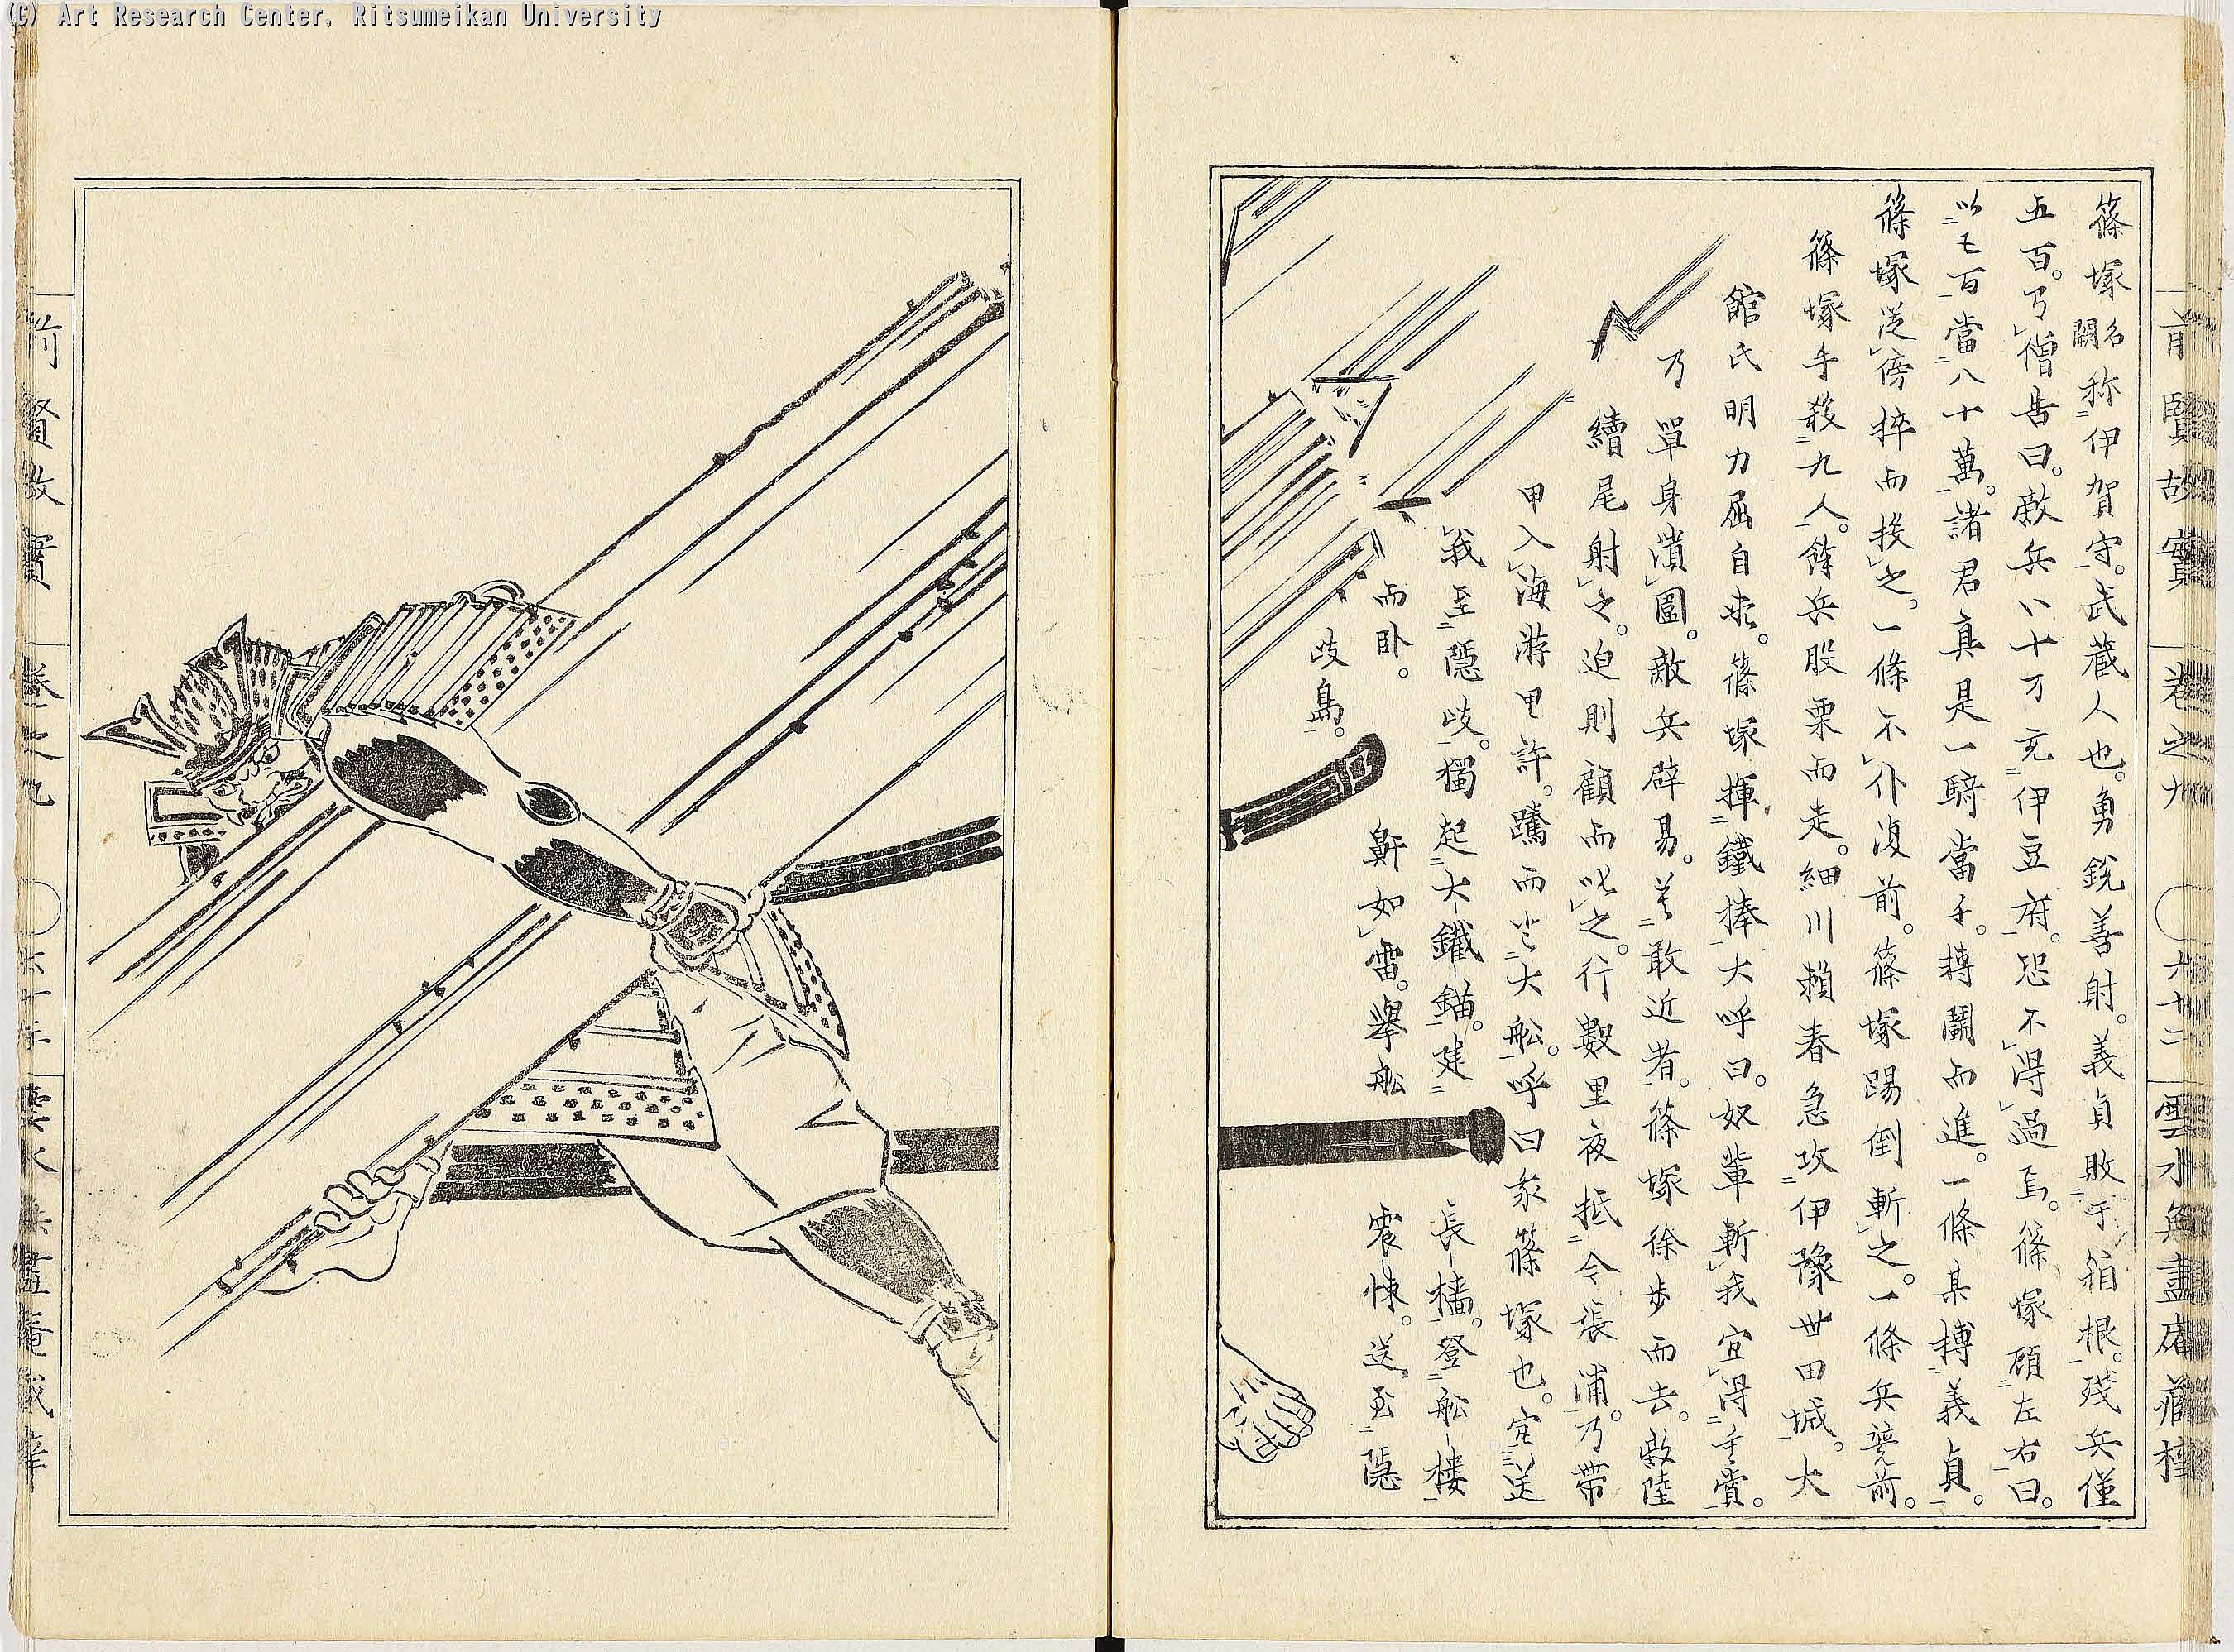 (C) Art Research Center, Ritsumeikan University
前賢故實 卷之九 六十二 雲水無盡庵藏梓
篠塚名闕称伊賀守。武藏人也。勇鋭善射。義貞敗于箱根。残兵僅
五百。乃僧告曰。敵兵八十万充伊豆府。恐不得過焉。篠塚顧左右曰。
以七百當八十萬。諸君真是一騎當千。轉鬪而進。一條某搏義貞。
篠塚従傍捽而投之。一條不仆復前。篠塚踢倒斬之。一條兵競前。
篠塚手殺九人。餘兵股栗而走。細川頼春急攻伊豫世田城。大
館氏明力屈自尽。篠塚揮鐵捧大呼曰。奴輩斬我宜得千賞。
乃單身潰圍。敵兵辟易。莫敢近者。篠塚徐歩而去。敵陸
續尾射之。迫則顧而叱之。行數里夜抵今張浦。乃帯
甲入海游里許。騰而上大舩。呼曰我篠塚也。宜送
我至隱岐。獨起大鐵錨。建長檣。登舩樓
而卧。鼾如雷。擧舩震悚。送至隱
岐島。
前賢故實 卷之九 雲水無盡庵藏梓